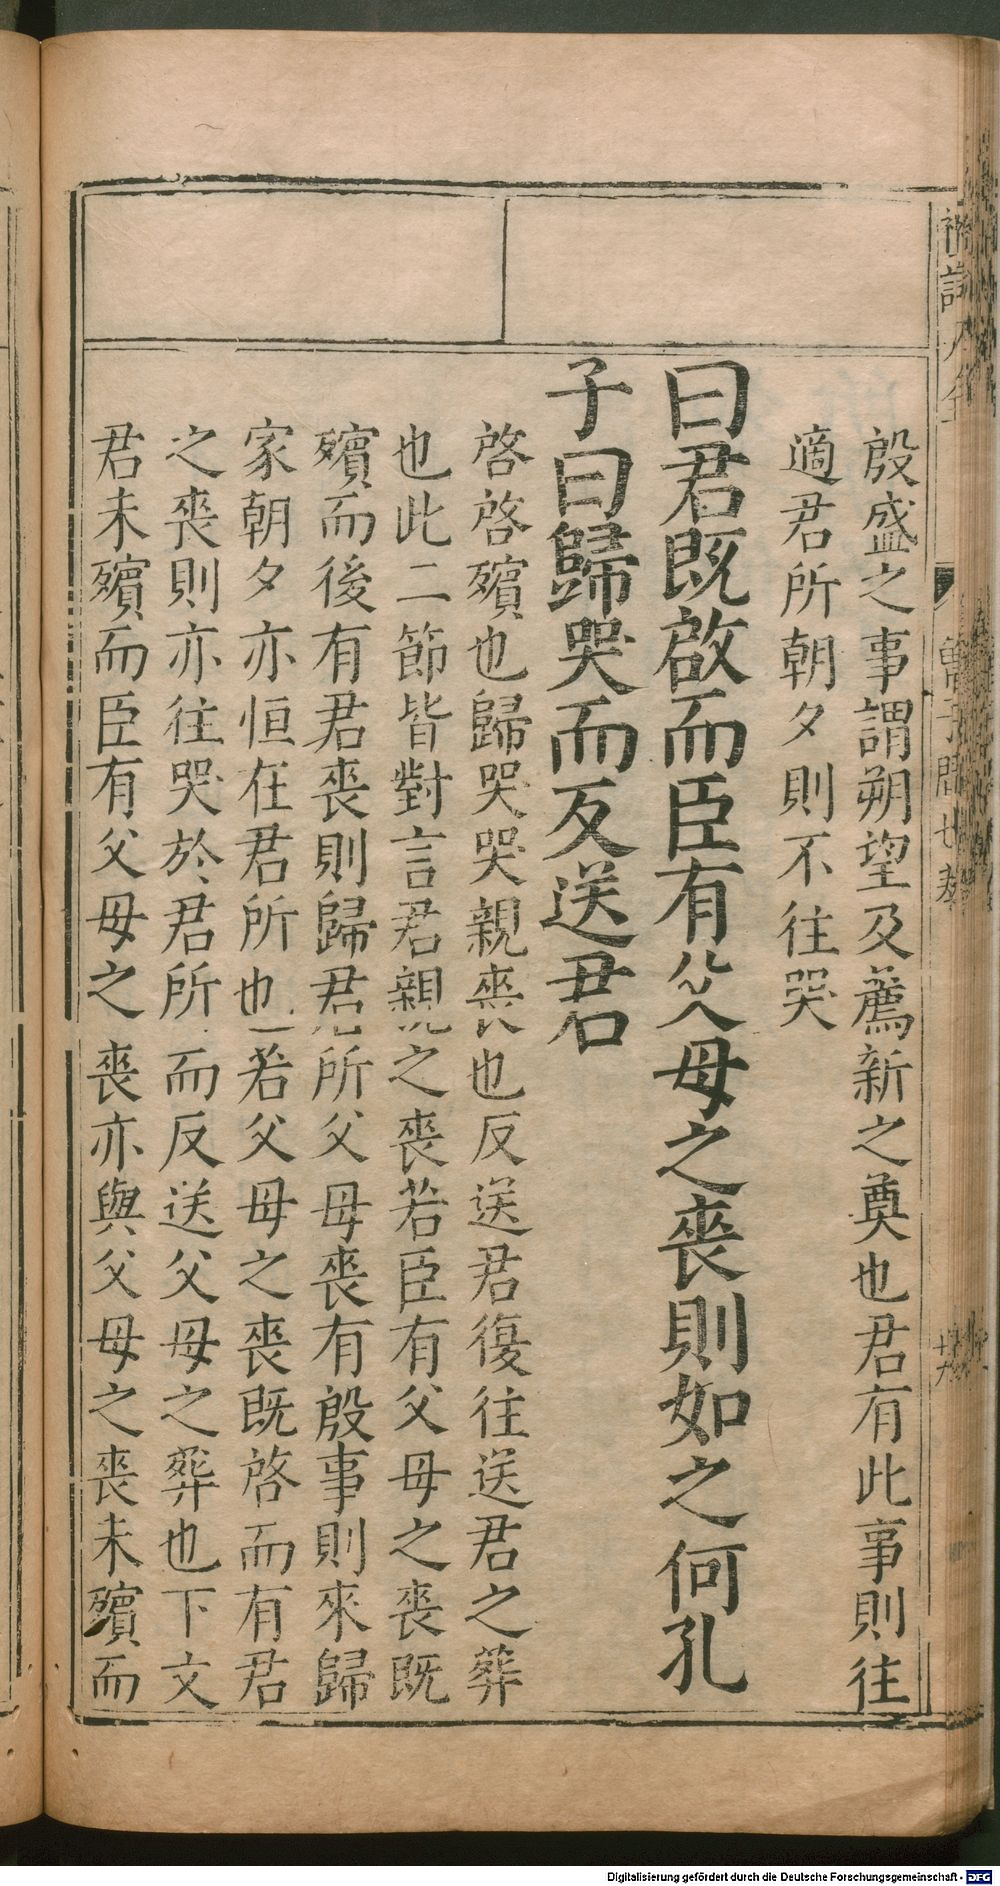 殷盛之事謂朔望及薦新之奠也君有此事則往
適君所朝夕則不往哭
曰君既啟而臣有父母之喪則如之何孔
子曰歸哭而反送君
啓啓殯也歸哭哭親喪也反送君復往送君之葬
也此二節皆對言君親之喪若臣有父母之喪既
殯而後有君喪則歸君所父母喪有殷事則來歸
家朝夕亦恒在君所也若父母之喪既啓而有君
之喪則亦往哭於君所而反送父母之葬也下文
君未殯而臣有父母之喪亦與父母之喪未殯而
Digitalisierung gefördert durch die Deutsche Forschungsgemeinschaft - DFG